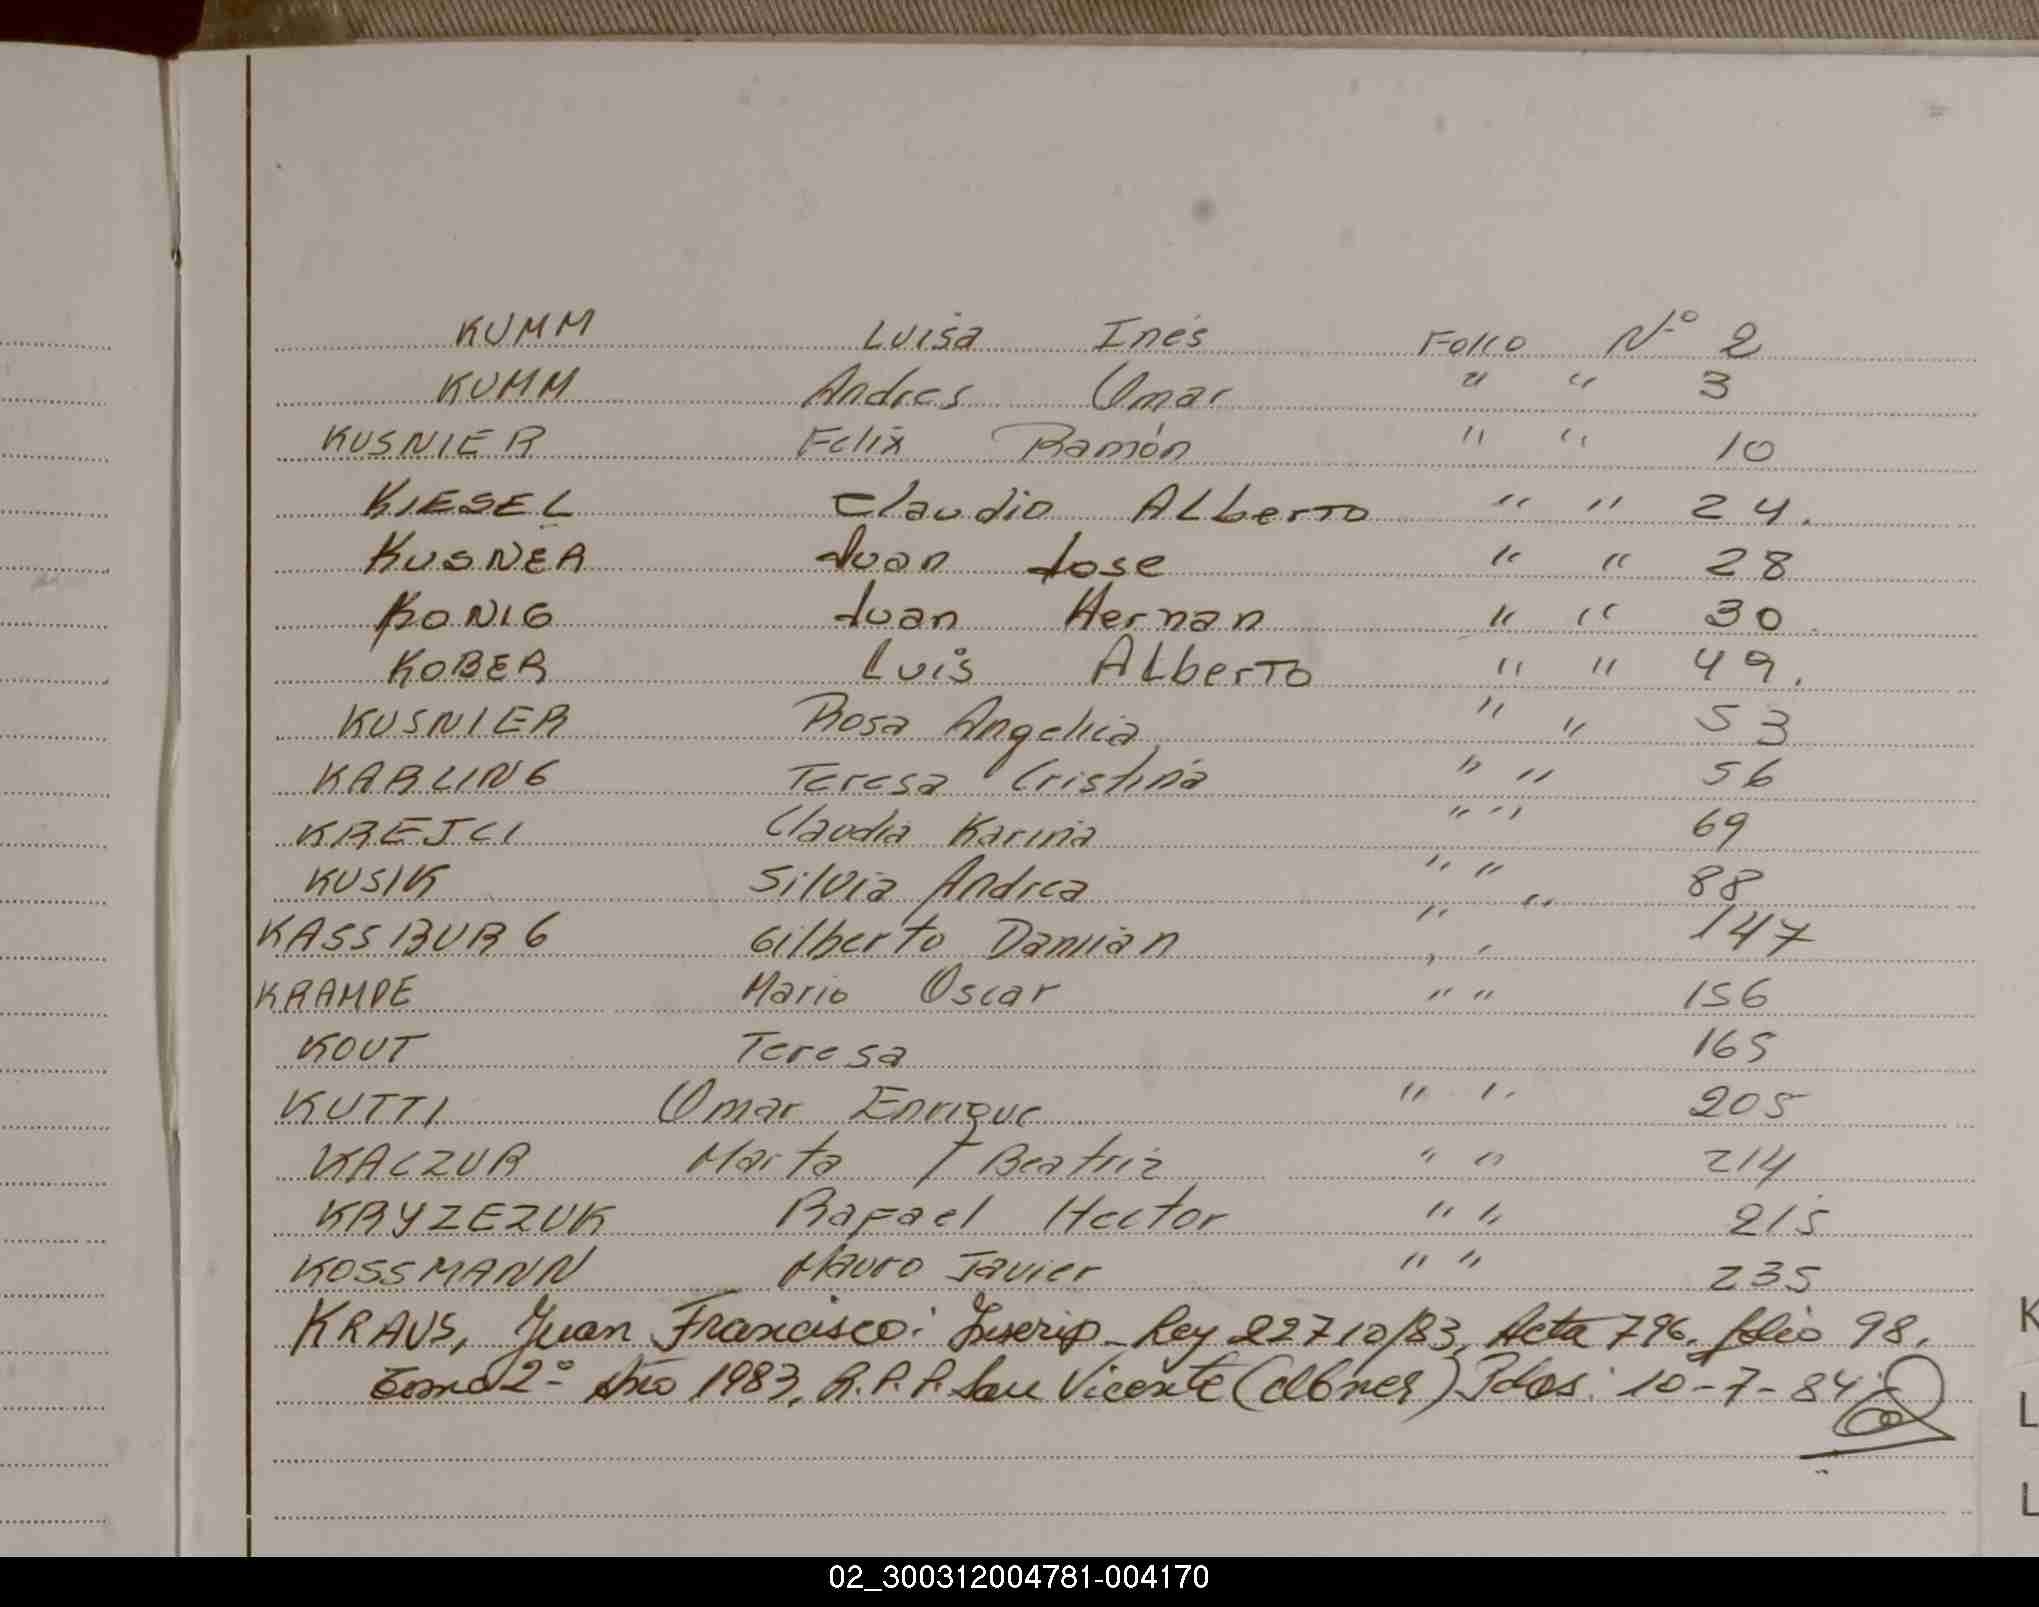 KUMM Luisa Inés Folio Nº 2
KUMM Andres Omar " " 3
KUSNIER Felix Ramón " " 10
KIESEL Claudio ALberTo " " 24.
KUSNER Juan Jose " " 28
KONIG Juan Hernan " " 30
KOBER Luis ALberTo " " 49.
KUSNIER Rosa Angelica " " 53
KARLING Teresa Cristina " " 56
KREJCI Claudia Karina " " 69
KUSIK Silvia Andrea " " 88
KASSBURG Gilberto Damian " " 147
KRAMPE Mario Oscar " " 156
KOUT Teresa 165
KUTTI Omar Enrique " " 205
KACZUR Marta Beatriz " " 214
KRYZEZUK Rafael Hector " " 215
KOSSMANN Mauro Javier " " 235
KRAUS, Juan Francisco: Inscrip. Ley 22710/83, Acta 796. folio 98,
Tomo 2º Año 1983, R.P.P. San Vicente Pdos: 10-7-84
K
L
L
02_300312004781-004170